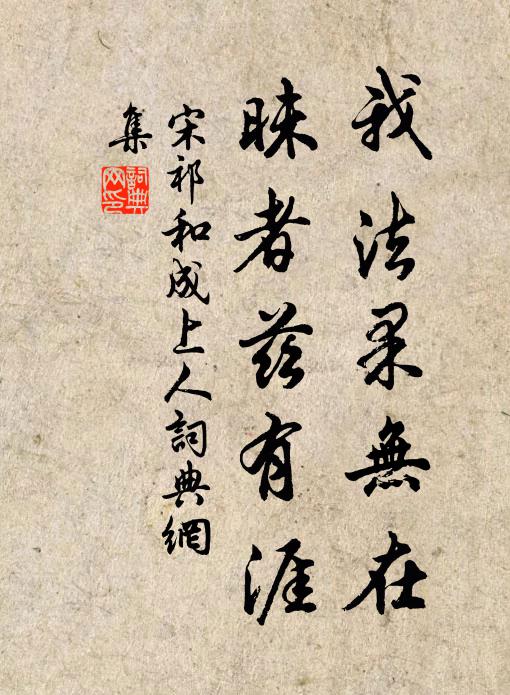 我法果無在
睐者茲有涯
宋祁和成上人詞典網
集
詞典
网印